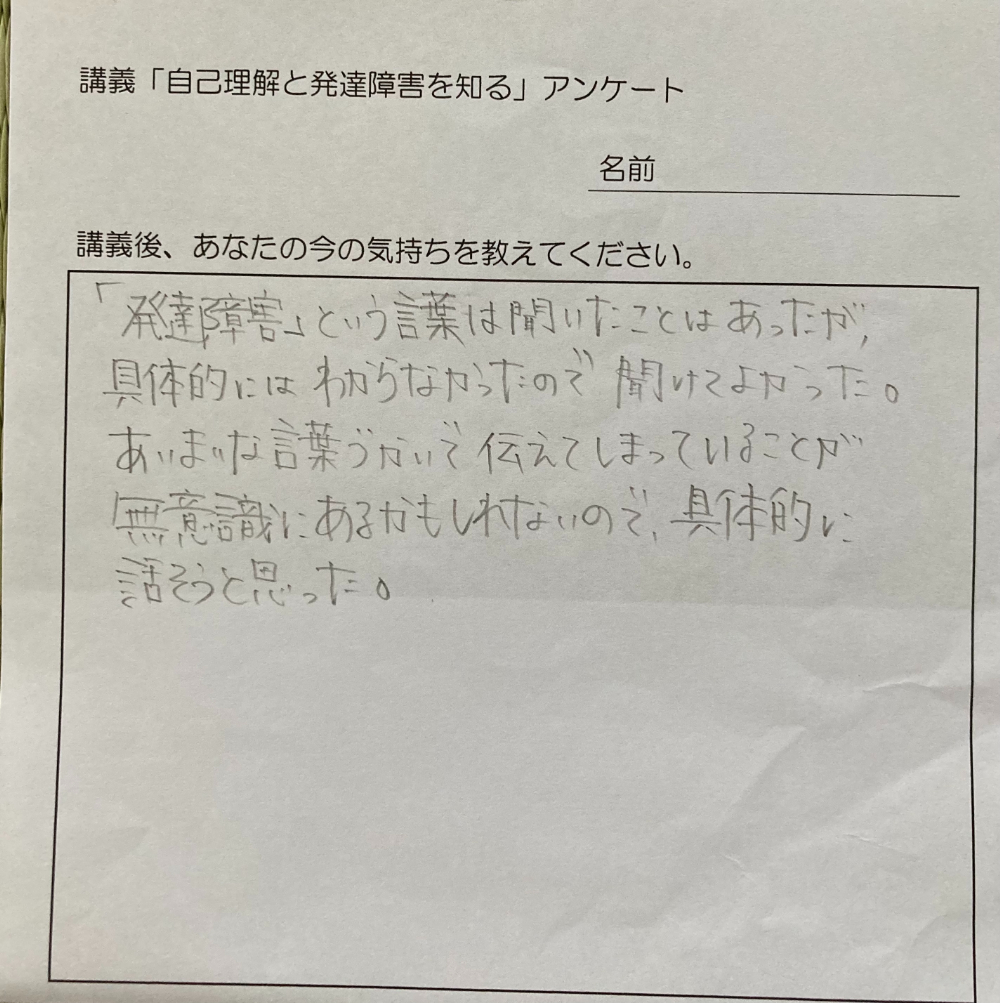 講義「自己理解と発達障害を知る」アンケート
名前
講義後、あなたの今の気持ちを教えてください。
「発達障害」という言葉は聞いたことはあったが、
具体的にはわからなかったので聞けてよかった。
あいまいな言葉づかいで伝えてしまっていることが
無意識にあるかもしれないので、具体的に
話そうと思った。